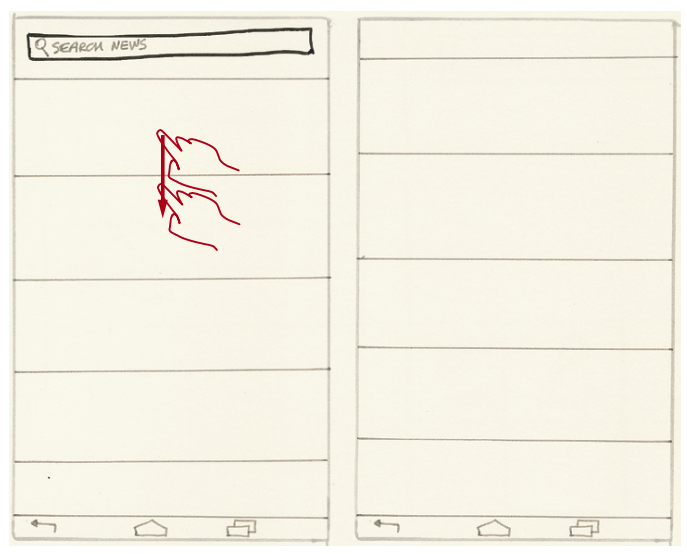 SEARCH NEWS